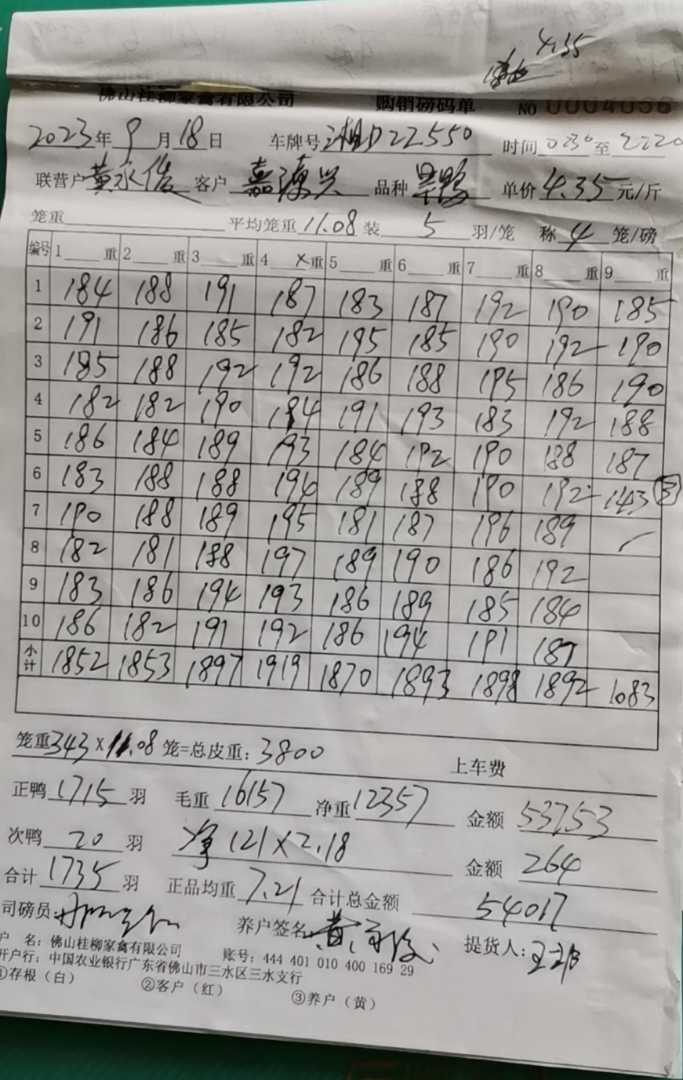 4.35
佛山桂柳家禽有限公司 购销磅码单 NO 0004056
2023年9月18日 车牌号 湘D22550 时间 0230至2220
联营户 黄永俊 客户 嘉源兴 品种 单价 4.35 元/斤
笼重 平均笼重 11.08 装 5 羽/笼 称 4 笼/磅
编号 1 重 2 重 3 重 4 重 5 重 6 重 7 重 8 重 9 重
1 184 188 191 187 183 187 192 190 185
2 191 186 185 182 195 185 190 192 190
3 185 188 192 192 186 188 195 186 190
4 182 182 190 184 191 193 183 192 188
5 186 184 189 193 184 192 190 188 187
6 183 188 188 194 189 188 190 192 143 ③
7 190 188 189 195 181 187 196 189
8 182 181 188 197 189 190 186 192
9 183 186 194 193 186 189 185 184
10 186 182 191 192 186 194 191 187
小计 1852 1853 1897 1919 1870 1893 1898 1892 1083
笼重 343×11.08 笼=总皮重: 3800 上车费
正鸭 1715 羽 毛重 16157 净重 12357 金额 53753
次鸭 20 羽 净 121×2.18 金额 264
合计 1735 羽 正品均重 7.21 合计总金额 54017
司磅员 养户签名 提货人:
户 名: 佛山桂柳家禽有限公司 账号: 444 401 010 400 169 29
开户行: 中国农业银行广东省佛山市三水区三水支行
①存根(白) ②客户(红) ③养户(黄)